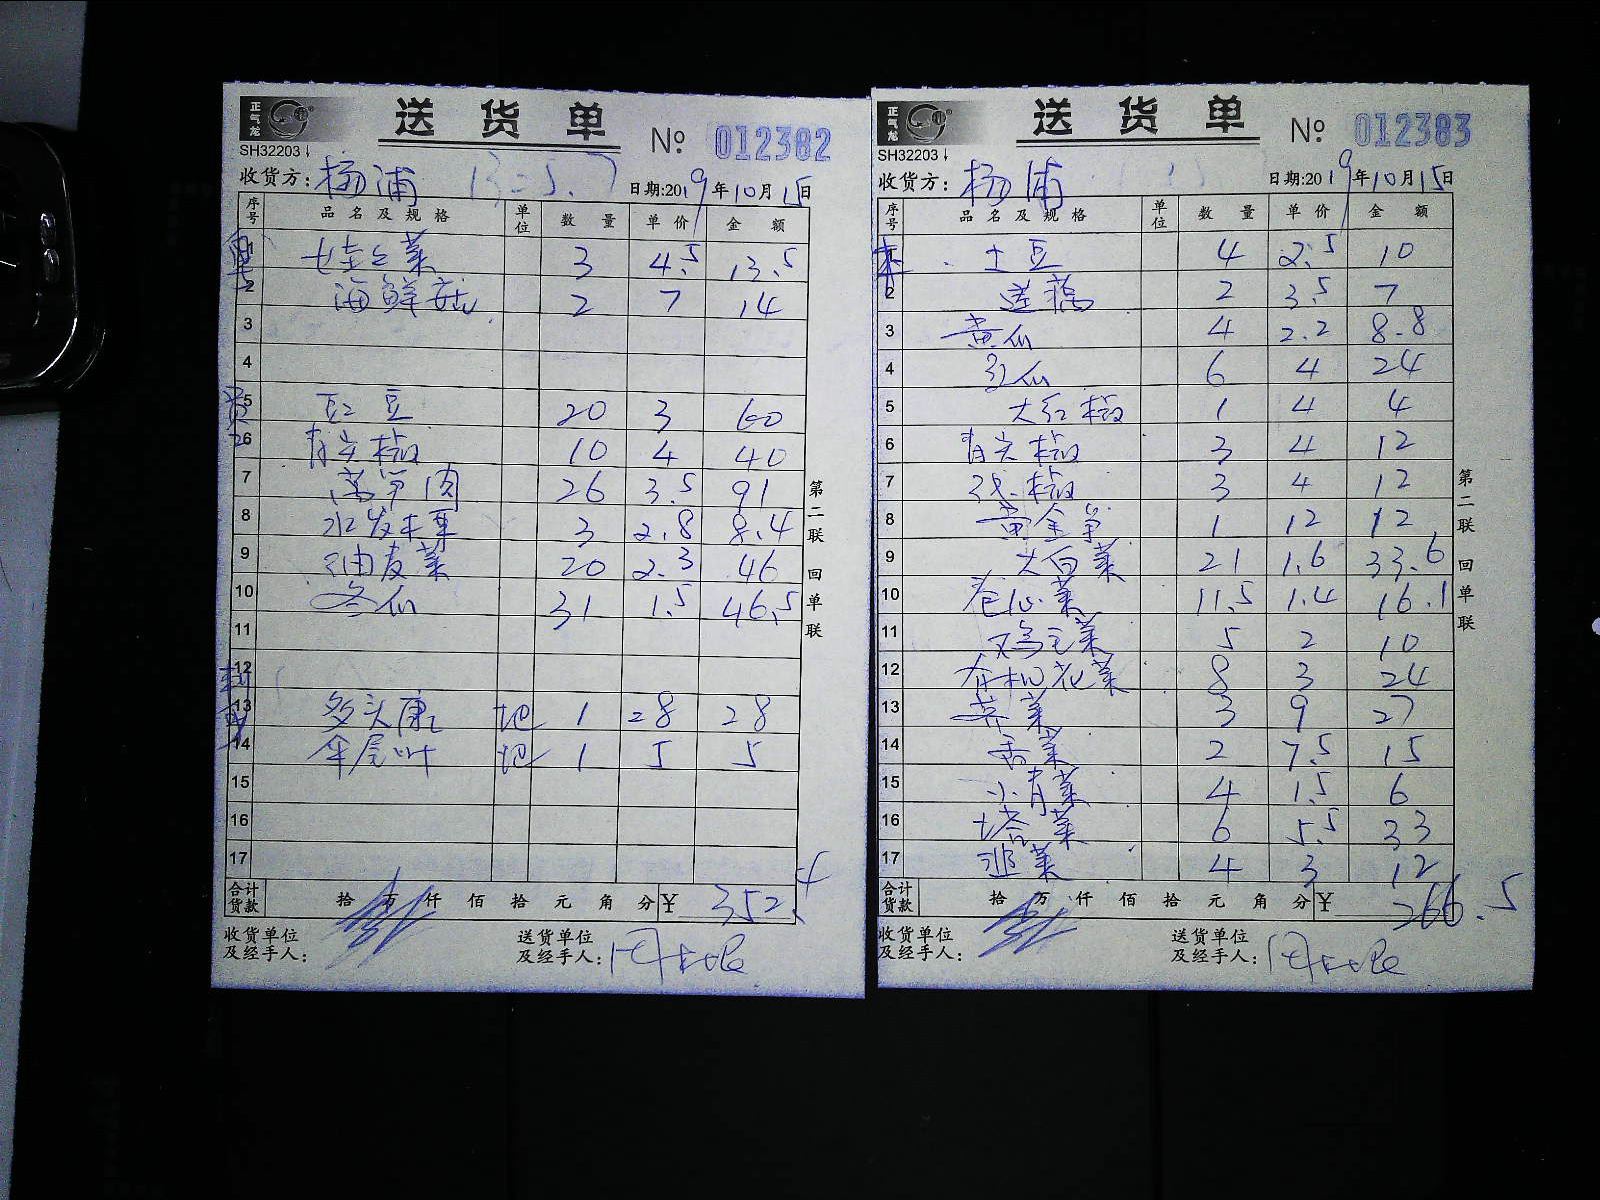 正气龙
送货单
№ 012382
SH32203
收货方: 杨浦
日期:2019年10月15日
序号 品名及规格 单位 数量 单价 金额
1 娃娃菜 3 4.5 13.5
2 海鲜菇 2 7 14
3
4
5 豇豆 20 3 60
6 青尖椒 10 4 40
7 莴笋肉 26 3.5 91
8 水发木耳 3 2.8 8.4
9 油麦菜 20 2.3 46
10 冬瓜 31 1.5 46.5
11
12
13 多头康 1 28 28
14 伞尾叶 1 5 5
15
16
17
合计货款 拾 万 仟 佰 拾 元 角 分 ¥ 352.4
收货单位及经手人:
送货单位及经手人:
第二联 回单联
正气龙
送货单
№ 012383
SH32203
收货方: 杨浦
日期:2019年10月15日
序号 品名及规格 单位 数量 单价 金额
土豆 4 2.5 10
2 莲藕 2 3.5 7
3 黄瓜 4 2.2 8.8
4 瓜 6 4 24
5 大红椒 1 4 4
6 青尖椒 3 4 12
7 线椒 3 4 12
8 黄金笋 1 12 12
9 大白菜 21 1.6 33.6
10 卷心菜 11.5 1.4 16.1
11 鸡毛菜 5 2 10
12 有机花菜 8 3 24
13 菜 3 9 27
14 香菜 2 7.5 15
15 小青菜 4 1.5 6
16 塔菜 6 5.5 33
17 韭菜 4 3 12
合计货款 拾 万 仟 佰 拾 元 角 分 ¥ 266.5
收货单位及经手人:
送货单位及经手人:
第二联 回单联